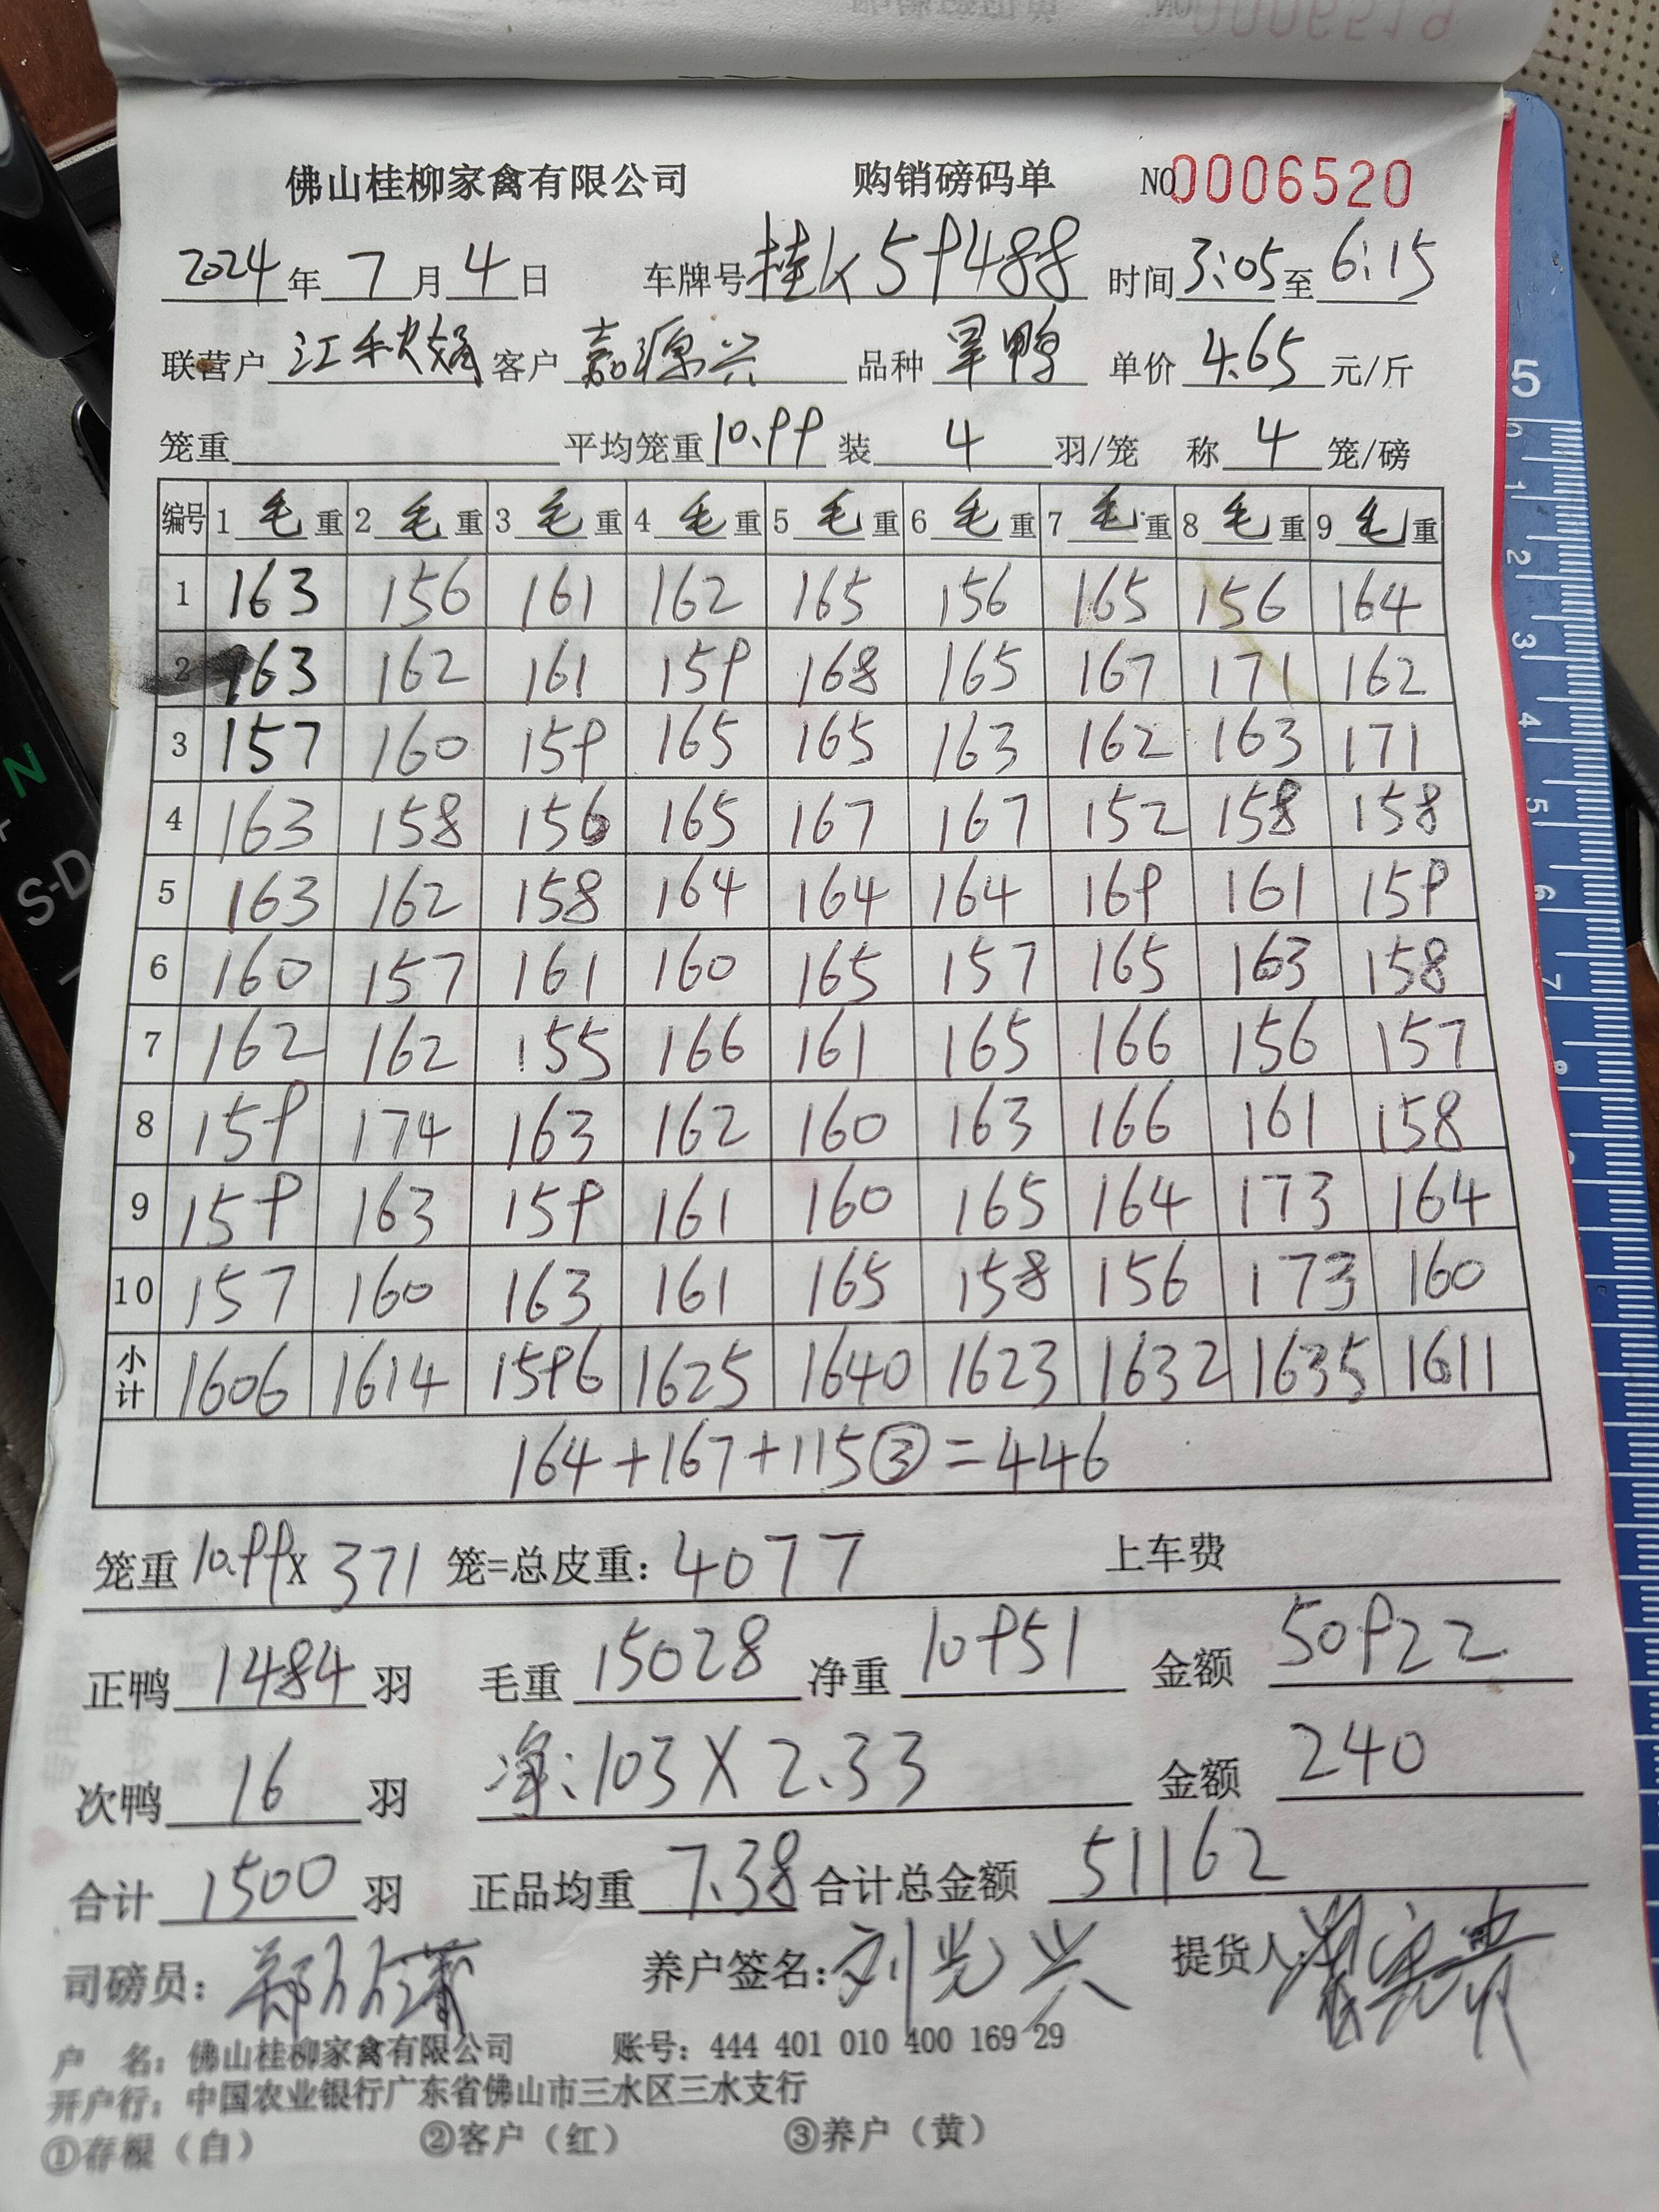 佛山桂柳家禽有限公司 购销磅码单 NO 0006520
2024年7月4日 车牌号桂K59488 时间3:05至6:15
联营户江秋娟 客户嘉源兴 品种旱鸭 单价4.65元/斤
笼重 平均笼重10.99 装4羽/笼 称4笼/磅
编号 1毛重 2毛重 3毛重 4毛重 5毛重 6毛重 7毛重 8毛重 9毛重
1 163 156 161 162 165 156 165 156 164
2 163 162 161 159 168 165 167 171 162
3 157 160 159 165 165 163 162 163 171
4 163 158 156 165 167 167 152 158 158
5 163 162 158 164 164 164 169 161 159
6 160 157 161 160 165 157 165 163 158
7 162 162 155 166 161 165 166 156 157
8 159 174 163 162 160 163 166 161 158
9 159 163 159 161 160 165 164 173 164
10 157 160 163 161 165 158 156 173 160
小计 1606 1614 1596 1625 1640 1623 1632 1635 1611
164+167+115③=446
笼重10.99X371笼=总皮重:4077 上车费
正鸭1484羽 毛重15028 净重10951 金额50922
次鸭16羽 净:103X2.33 金额240
合计1500羽 正品均重7.38 合计总金额51162
司磅员: 养户签名:刘光兴 提货人:
户 名:佛山桂柳家禽有限公司 账号:444 401 010 400 169 29
开户行:中国农业银行广东省佛山市三水区三水支行
①存根(白) ②客户(红) ③养户(黄)